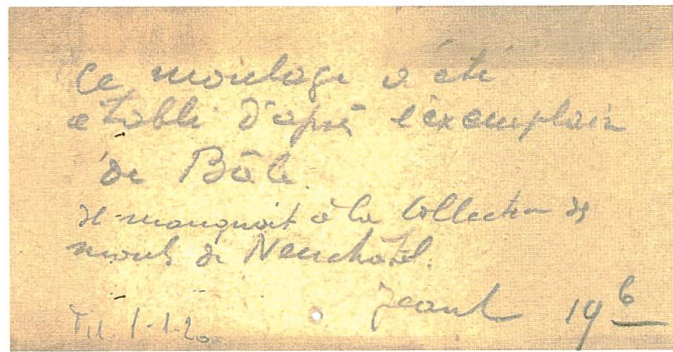 Ce moulage a été
établi d'après l'exemplaire
de Bâle.
Il manquait à la Collection des
moul. de Neuchâtel.
19